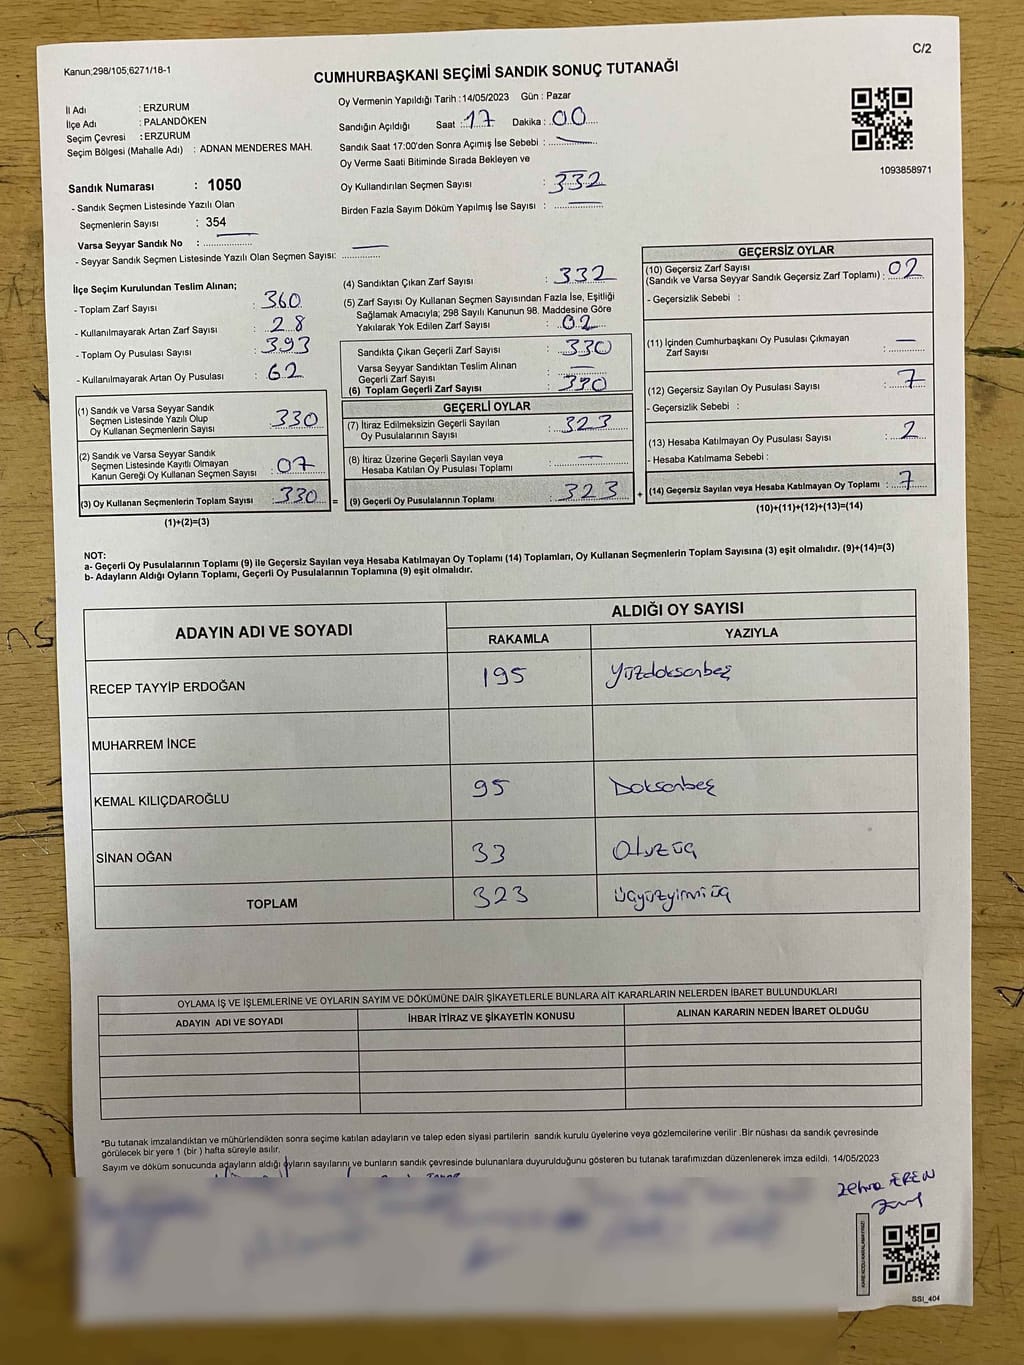 C/2
Kanun;298/105;6271/18-1
CUMHURBAŞKANI SEÇİMİ SANDIK SONUÇ TUTANAĞI
İl Adı : ERZURUM
İlçe Adı : PALANDÖKEN
Seçim Çevresi : ERZURUM
Seçim Bölgesi (Mahalle Adı) : ADNAN MENDERES MAH.
Sandık Numarası : 1050
- Sandık Seçmen Listesinde Yazılı Olan
Seçmenlerin Sayısı : 354
Varsa Seyyar Sandık No :
- Seyyar Sandık Seçmen Listesinde Yazılı Olan Seçmen Sayısı:
Oy Vermenin Yapıldığı Tarih :14/05/2023 Gün : Pazar
Sandığın Açıldığı Saat : 17 Dakika : 00
Sandık Saat 17:00'den Sonra Açımış İse Sebebi :
Oy Verme Saati Bitiminde Sırada Bekleyen ve
Oy Kullandırılan Seçmen Sayısı : 332
Birden Fazla Sayım Döküm Yapılmış İse Sayısı :
1093858971
İlçe Seçim Kurulundan Teslim Alınan;
- Toplam Zarf Sayısı : 360
- Kullanılmayarak Artan Zarf Sayısı : 28
- Toplam Oy Pusulası Sayısı : 393
- Kullanılmayarak Artan Oy Pusulası : 62
(1) Sandık ve Varsa Seyyar Sandık
Seçmen Listesinde Yazılı Olup
Oy Kullanan Seçmenlerin Sayısı : 330
(2) Sandık ve Varsa Seyyar Sandık
Seçmen Listesinde Kayıtlı Olmayan
Kanun Gereği Oy Kullanan Seçmen Sayısı : 07
(3) Oy Kullanan Seçmenlerin Toplam Sayısı : 330 =
(1)+(2)=(3)
(4) Sandıktan Çıkan Zarf Sayısı : 332
(5) Zarf Sayısı Oy Kullanan Seçmen Sayısından Fazla İse, Eşitliği
Sağlamak Amacıyla; 298 Sayılı Kanunun 98. Maddesine Göre
Yakılarak Yok Edilen Zarf Sayısı : 02
Sandıkta Çıkan Geçerli Zarf Sayısı : 330
Varsa Seyyar Sandıktan Teslim Alınan
Geçerli Zarf Sayısı :
(6) Toplam Geçerli Zarf Sayısı : 330
GEÇERLİ OYLAR
(7) İtiraz Edilmeksizin Geçerli Sayılan
Oy Pusulalarının Sayısı : 323
(8) İtiraz Üzerine Geçerli Sayılan veya
Hesaba Katılan Oy Pusulası Toplamı :
(9) Geçerli Oy Pusulalarının Toplamı : 323 +
GEÇERSİZ OYLAR
(10) Geçersiz Zarf Sayısı
(Sandık ve Varsa Seyyar Sandık Geçersiz Zarf Toplamı) : 02
- Geçersizlik Sebebi :
(11) İçinden Cumhurbaşkanı Oy Pusulası Çıkmayan
Zarf Sayısı :
(12) Geçersiz Sayılan Oy Pusulası Sayısı : 7
- Geçersizlik Sebebi :
(13) Hesaba Katılmayan Oy Pusulası Sayısı : 2
- Hesaba Katılmama Sebebi :
(14) Geçersiz Sayılan veya Hesaba Katılmayan Oy Toplamı : 7
(10)+(11)+(12)+(13)=(14)
NOT:
a- Geçerli Oy Pusulalarının Toplamı (9) ile Geçersiz Sayılan veya Hesaba Katılmayan Oy Toplamı (14) Toplamları, Oy Kullanan Seçmenlerin Toplam Sayısına (3) eşit olmalıdır. (9)+(14)=(3)
b- Adayların Aldığı Oyların Toplamı, Geçerli Oy Pusulalarının Toplamına (9) eşit olmalıdır.
ADAYIN ADI VE SOYADI
ALDIĞI OY SAYISI
RAKAMLA YAZIYLA
RECEP TAYYİP ERDOĞAN 195 Yüzdoksanbeş
MUHARREM İNCE
KEMAL KILIÇDAROĞLU 95 Doksanbeş
SİNAN OĞAN 33 Otuzüç
TOPLAM 323 Üçyüzyirmiüç
OYLAMA İŞ VE İŞLEMLERİNE VE OYLARIN SAYIM VE DÖKÜMÜNE DAİR ŞİKAYETLERLE BUNLARA AİT KARARLARIN NELERDEN İBARET BULUNDUKLARI
ADAYIN ADI VE SOYADI İHBAR İTİRAZ VE ŞİKAYETİN KONUSU ALINAN KARARIN NEDEN İBARET OLDUĞU
*Bu tutanak imzalandıktan ve mühürlendikten sonra seçime katılan adayların ve talep eden siyasi partilerin sandık kurulu üyelerine veya gözlemcilerine verilir .Bir nüshası da sandık çevresinde
görülecek bir yere 1 (bir ) hafta süreyle asılır.
Sayım ve döküm sonucunda adayların aldığı oyların sayılarını ve bunların sandık çevresinde bulunanlara duyurulduğunu gösteren bu tutanak tarafımızdan düzenlenerek imza edildi. 14/05/2023
Zehra EREN
SSI_404